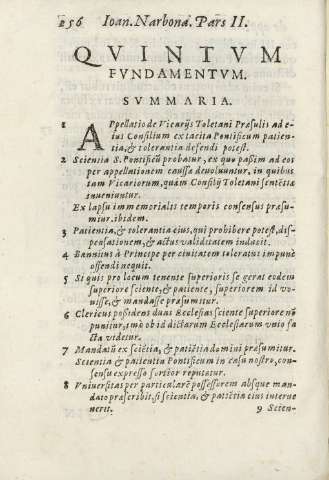 256 Ioan. Narbona. Pars II.
QVINTVM
FVNDAMENTVM.
SVMMARIA.
1 APpellatio de Vicarijs Toletani Præsulis ad e-
ius Consilium ex tacita Pontificum patien-
tia, & tolerantia defendi potest.
2 Scientia S. Pontificũ probatur, ex quo paßim ad eos
per appellationem caussæ deuoluuntur, in quibus
tam Vicariorum, quàm Consilij Toletani sentẽtiæ
inueniuntur.
Ex lapsu immemorialis temporis consensus præsu-
mitur. ibidem.
3 Patientia, & tolerantia eius, qui prohibere potest, dis-
pensationem, & actus validitatem inducit.
4 Bannitus à Principe per ciuitatem toleratus impunè
offendi nequit.
5 Si quis pro locum tenente superioris se gerat eodem
superiore sciente, & patiente, superiorem id vo-
uisse, & mandasse præsumitur.
6 Clericus possidens duas Ecclesias sciente superiore nõ
punitur, imò ob id dictarum Ecclesiarum vnio fa
cta videtur.
7 Mandatũ ex sciẽtia, & patiẽtia domini præsumitur.
Scientia & patientia Pontificum in casu nostro, con-
sensu expresso fortior reputatur.
8 Vniuersitas per particularẽ possessorem absque man-
dato præscribit, si scientia, & patiẽtia eius interue
nerit. 9 Scien-